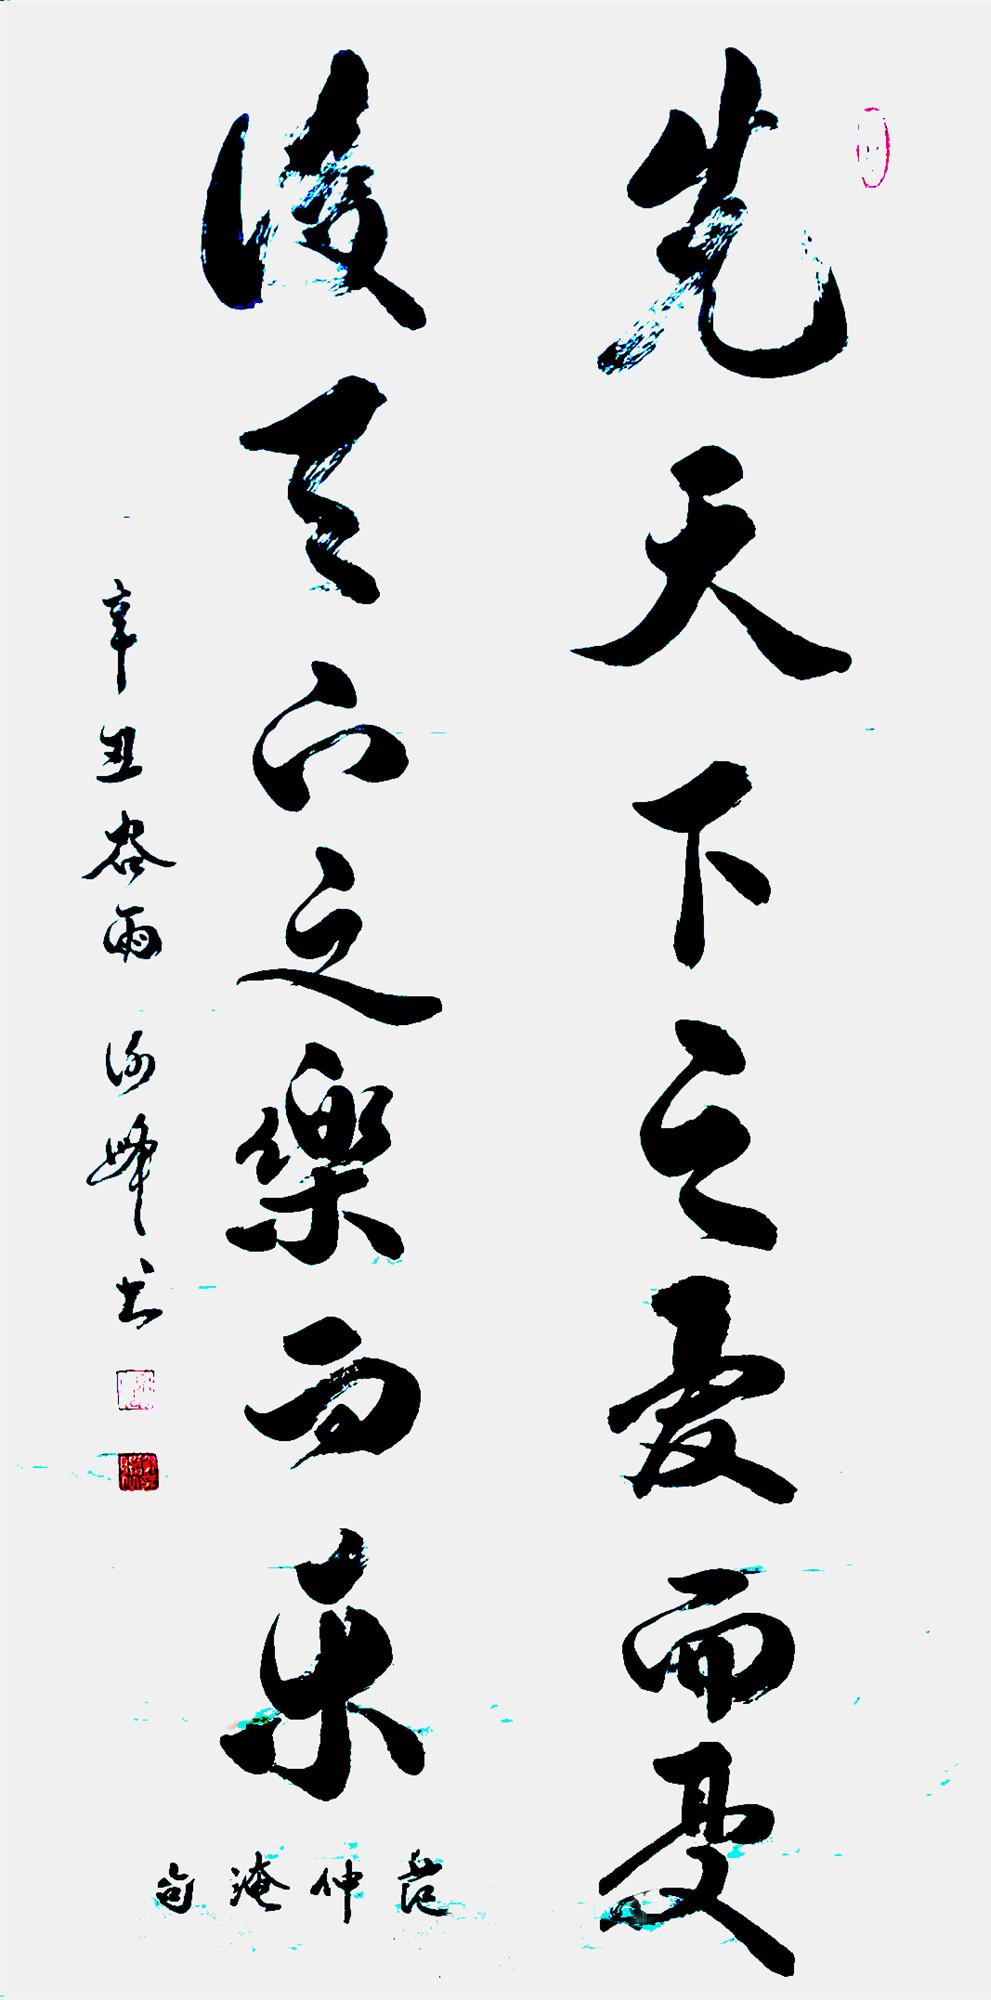 先天下之憂而憂
後天下之樂而樂
范仲淹句
辛丑谷雨 峰书